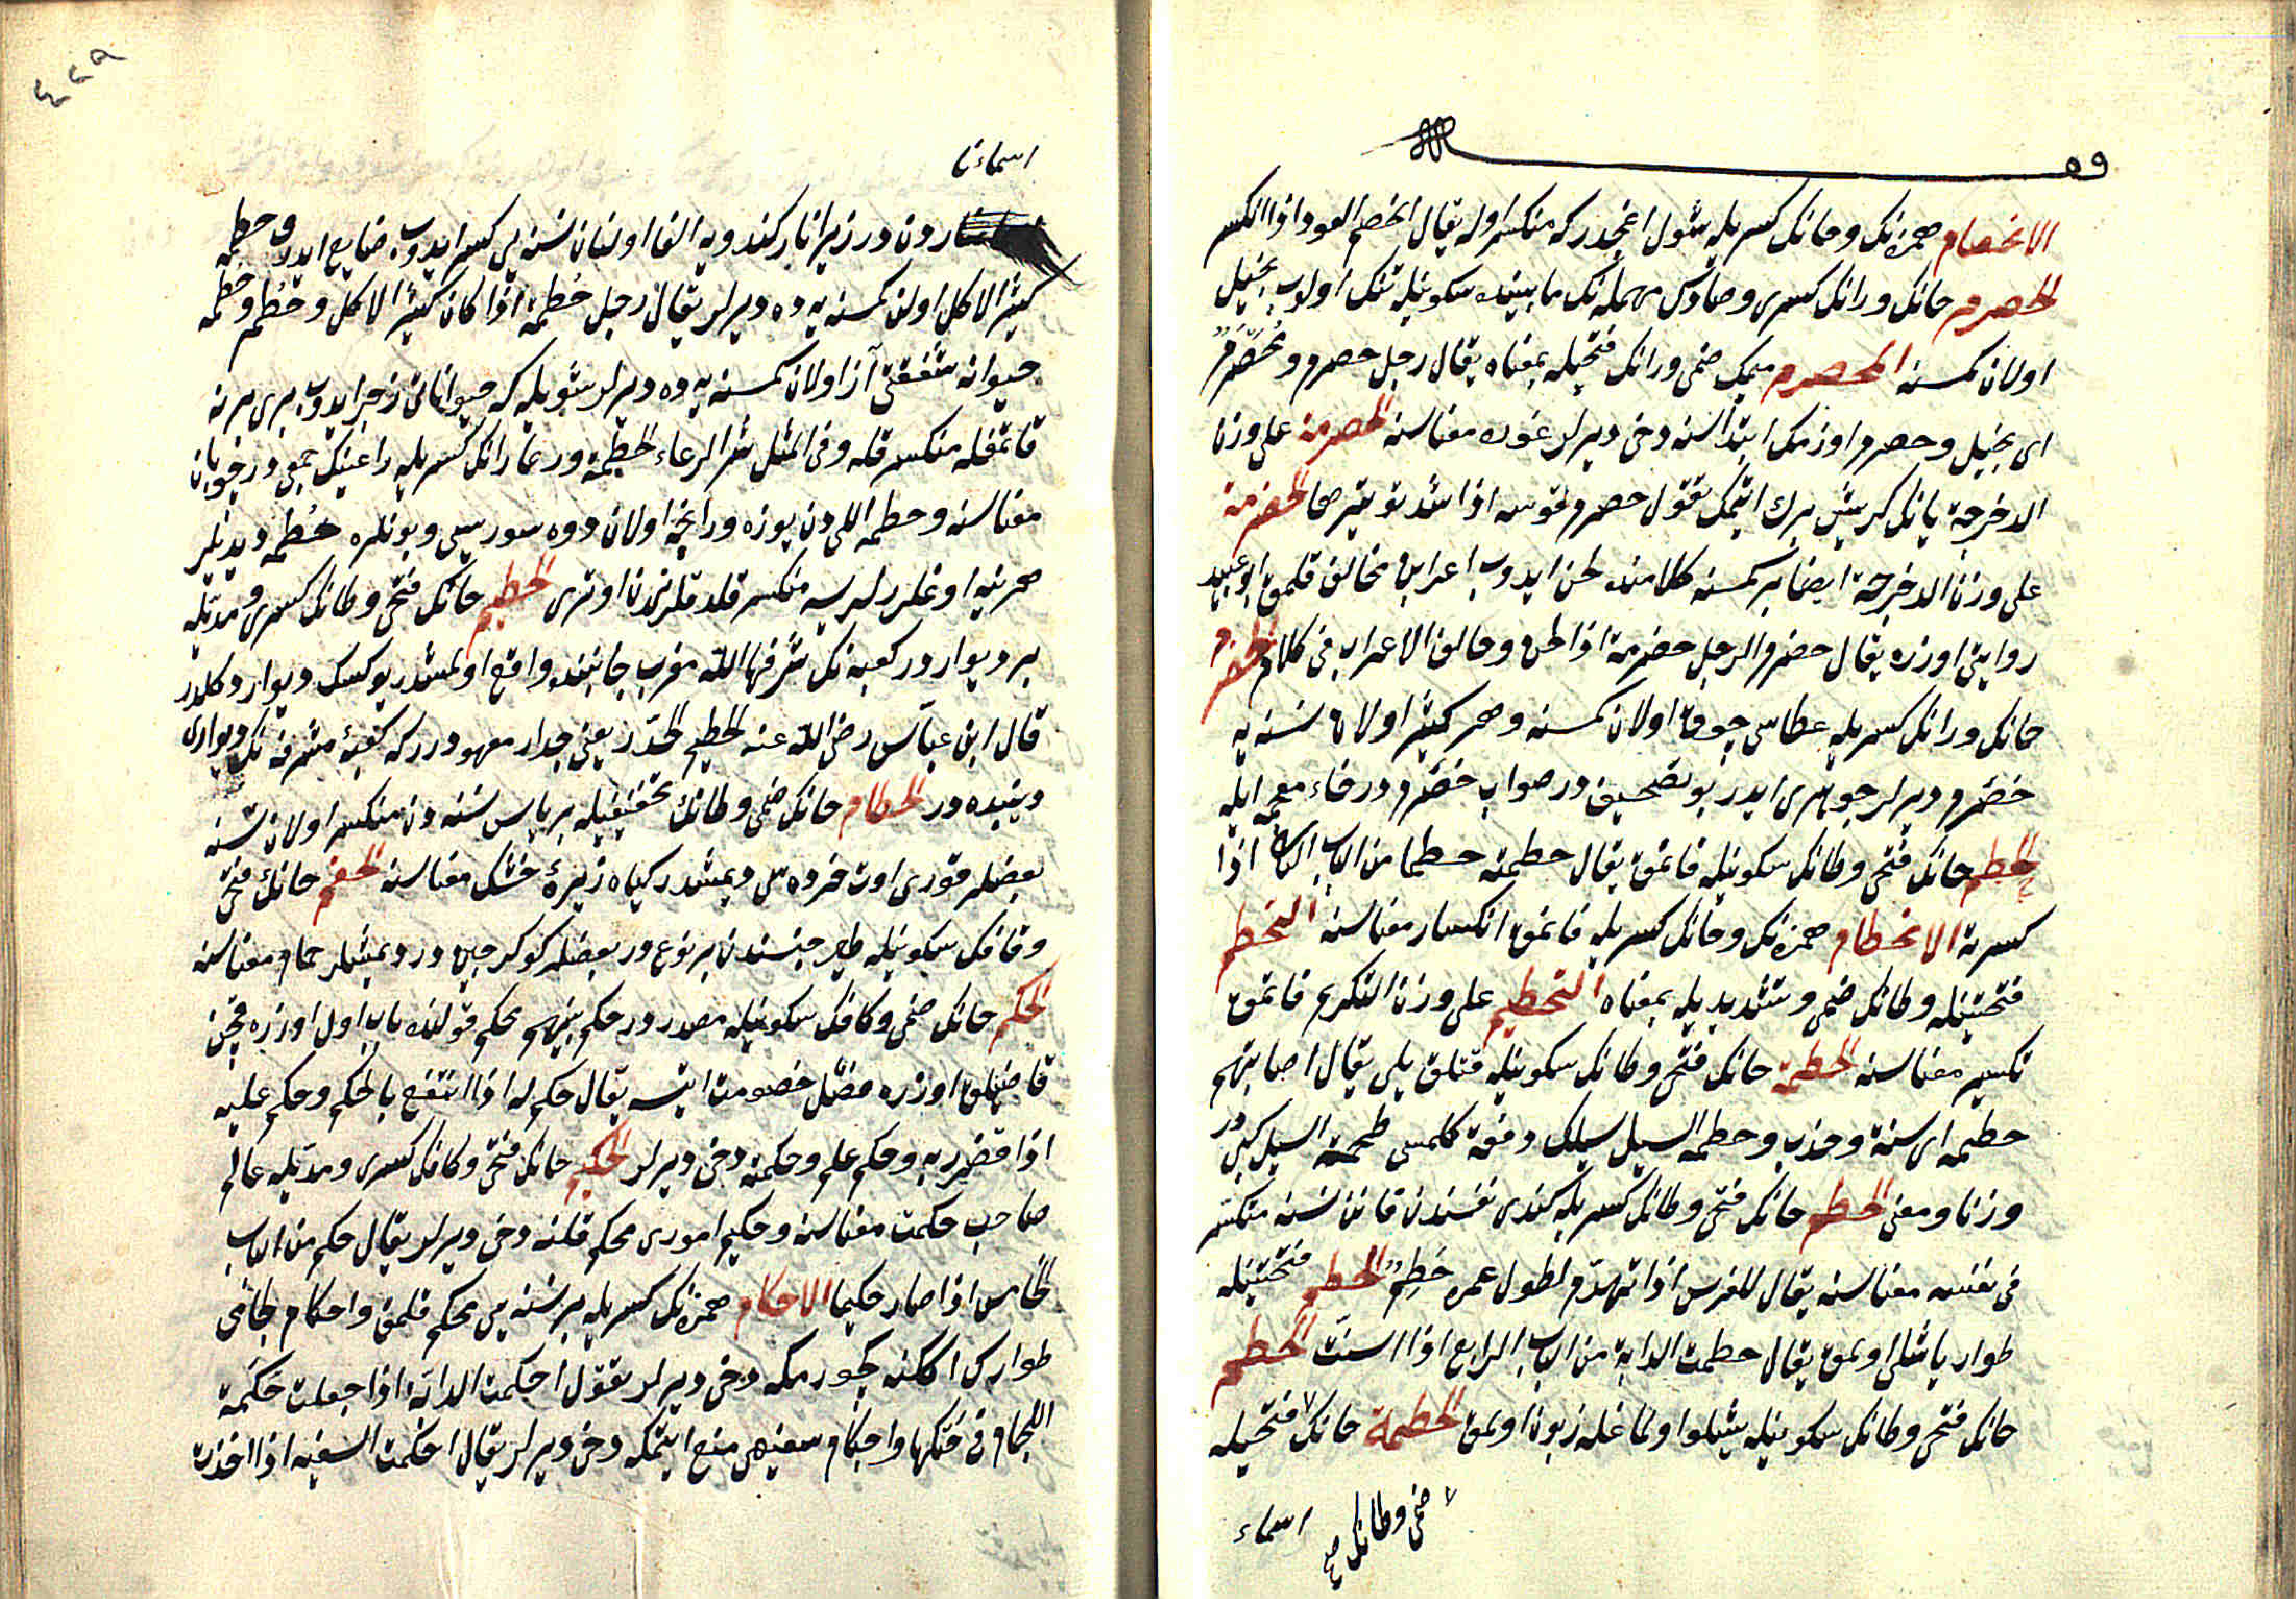 الانحصام همزه‌نك وحانك كسريله شول اغجدركه منكسر اوله يقال انحصم العود اذا انكسر
الحصرم حانك ورانك كسرى وصادس مهمله‌نك مابينده سكونيله تنك اولوب بخيل
اولان كمسنه المحصرم ميمك ضمى ورانك فتحيله بمعناه يقال رجل حصرم ومحصرم
اى بخيل وحصرم اوزمك ابتداسنه دخى ديرلر غوره معناسنه الحصرمة على وزن
الدحرجة يانك كريشن برك ايتمك تقول حصرم قوسه اذا شد توتيرها الحضرمة
على وزن الدحرجة ايضا بر كمسنه كلامنده لحن ايدوب اعرابى مخالف قلمق ابو عبيد
روايتى اوزره يقال حضرم الرجل حضرمة اذا لحن وخالف الاعراب فى كلامه الحضرم
حانك ورانك كسريله عطاسى چوق اولان كمسنه وهر كثير اولان نسنه يه
خضرم ديرلر جوهرى ايدر بو تصحيفدر صواب خضرم در خاء معجمه ايله
الحطم حانك فتحى وطانك سكونيله قاتمق يقال حطمته حطما من الباب الثانى اذا
كسرته الانحطام همزه‌نك وحانك كسريله قاتمق انكسار معناسنه التحطم
فتحتينله وطانك ضمى وتشديديله بمعناه التحطيم على وزن التكريم قاتمق
تكسير معناسنه الحطمة حانك فتحى وطانك سكونيله قتلق يلى يقال اصابتهم
حطمة اى سنة وجذب وحطمة السيل سيلك دفعة كلمسى طحمة السيل كبى در
وزنا ومعنى الحطم حانك فتحى وطانك كسريله كندى نفسندن قاتن نسنه منكسر
فى نفسه معناسنه يقال للفرس اذا تهدم لطول عمره حطم الحطم فتحتينله
طوار ياشلو اولمق يقال حطمت الدابة من الباب الرابع اذا اسنت الحطم
حانك فتحى وطانك سكونيله يشلو اولماغله زبون اولمق الحطمة حانك فتحيله
ضمى وطانك صح
اسماء
٤٢٩
اسماء نا
دن در زيرا نار كندويه القا اولنان نسنه يى كسر ايدوب ضايع ايدر وحطمة
كثير الاكل اولن كمسنه يه ده ديرلر يقال رجل حطمة اذا كان كثير الاكل وحطم وحطمة
حيوانه شفقتى آز اولان كمسنه يه ده ديرلر شويله كه حيواناتى زجر ايدوب برى برنه
قاتمغله منكسر قله وفى المثل شر الرعاء الحطمة ورعا رانك كسريله راعينك جمعى در چوبان
معناسنه وحطمة اللى دن يوزه وراينجه اولان دوه سوريسى وبونلره حطمة ديدنلر
هر نيه اوغلرلرسه منكسر قلدقلرندن اوترى الحطيم حانك فتحى وطانك كسرى ومديله
بر ديوار در كعبه نك شرفها الله مغرب جانبنده واقع اولمشدر يوكسك ديوار دكلدر
قال ابن عباس رضى الله عنه الحطيم الجدر يعنى جدار معهود در كه كعبۀ مشرفه نك ديوارى
دينبده در الحطام حانك ضمى وطانك تخفيفيله بر يابس نسنه دن منكسر اولان نسنه
بعضلر قورى اوت خرده سى ديمشلر در كياه زيرۀ خشك معناسنه الحقم حانك فتحى
وقافك سكونيله طير جنسندن بر نوع در بعضلر كوكرجين در ديمشلر حمام معناسنه
الحكم حانك ضمى وكافك سكونيله مصدر در حكم بينهم يحكم قولنده باب اول اوزره يعنى
قاضيلق اوزره فضل خصومت ايتسه يقال حكم له اذا انتفع بالحكم وحكم عليه
اذا تضرر به وحكم علم وحكمته دخى ديرلر الحكيم حانك فتحى وكافك كسرى ومديله عالم
صاحب حكمت معناسنه وحكيم امورى محكم قلنه دخى ديرلر يقال حكم من الباب
الخامس اذا صار حكيما الاحكام همزه‌نك كسريله بر نسنه يى محكم قلمق واحكام لجامى
طوارك اككنه كچورمكه دخى ديرلر تقول احكمت الدابة اذا جعلت حكمة
اللجام فى حنكها واحكام سفيهى منع ايتمكه دخى ديرلر يقال احكمت السفيه اذا اخذت